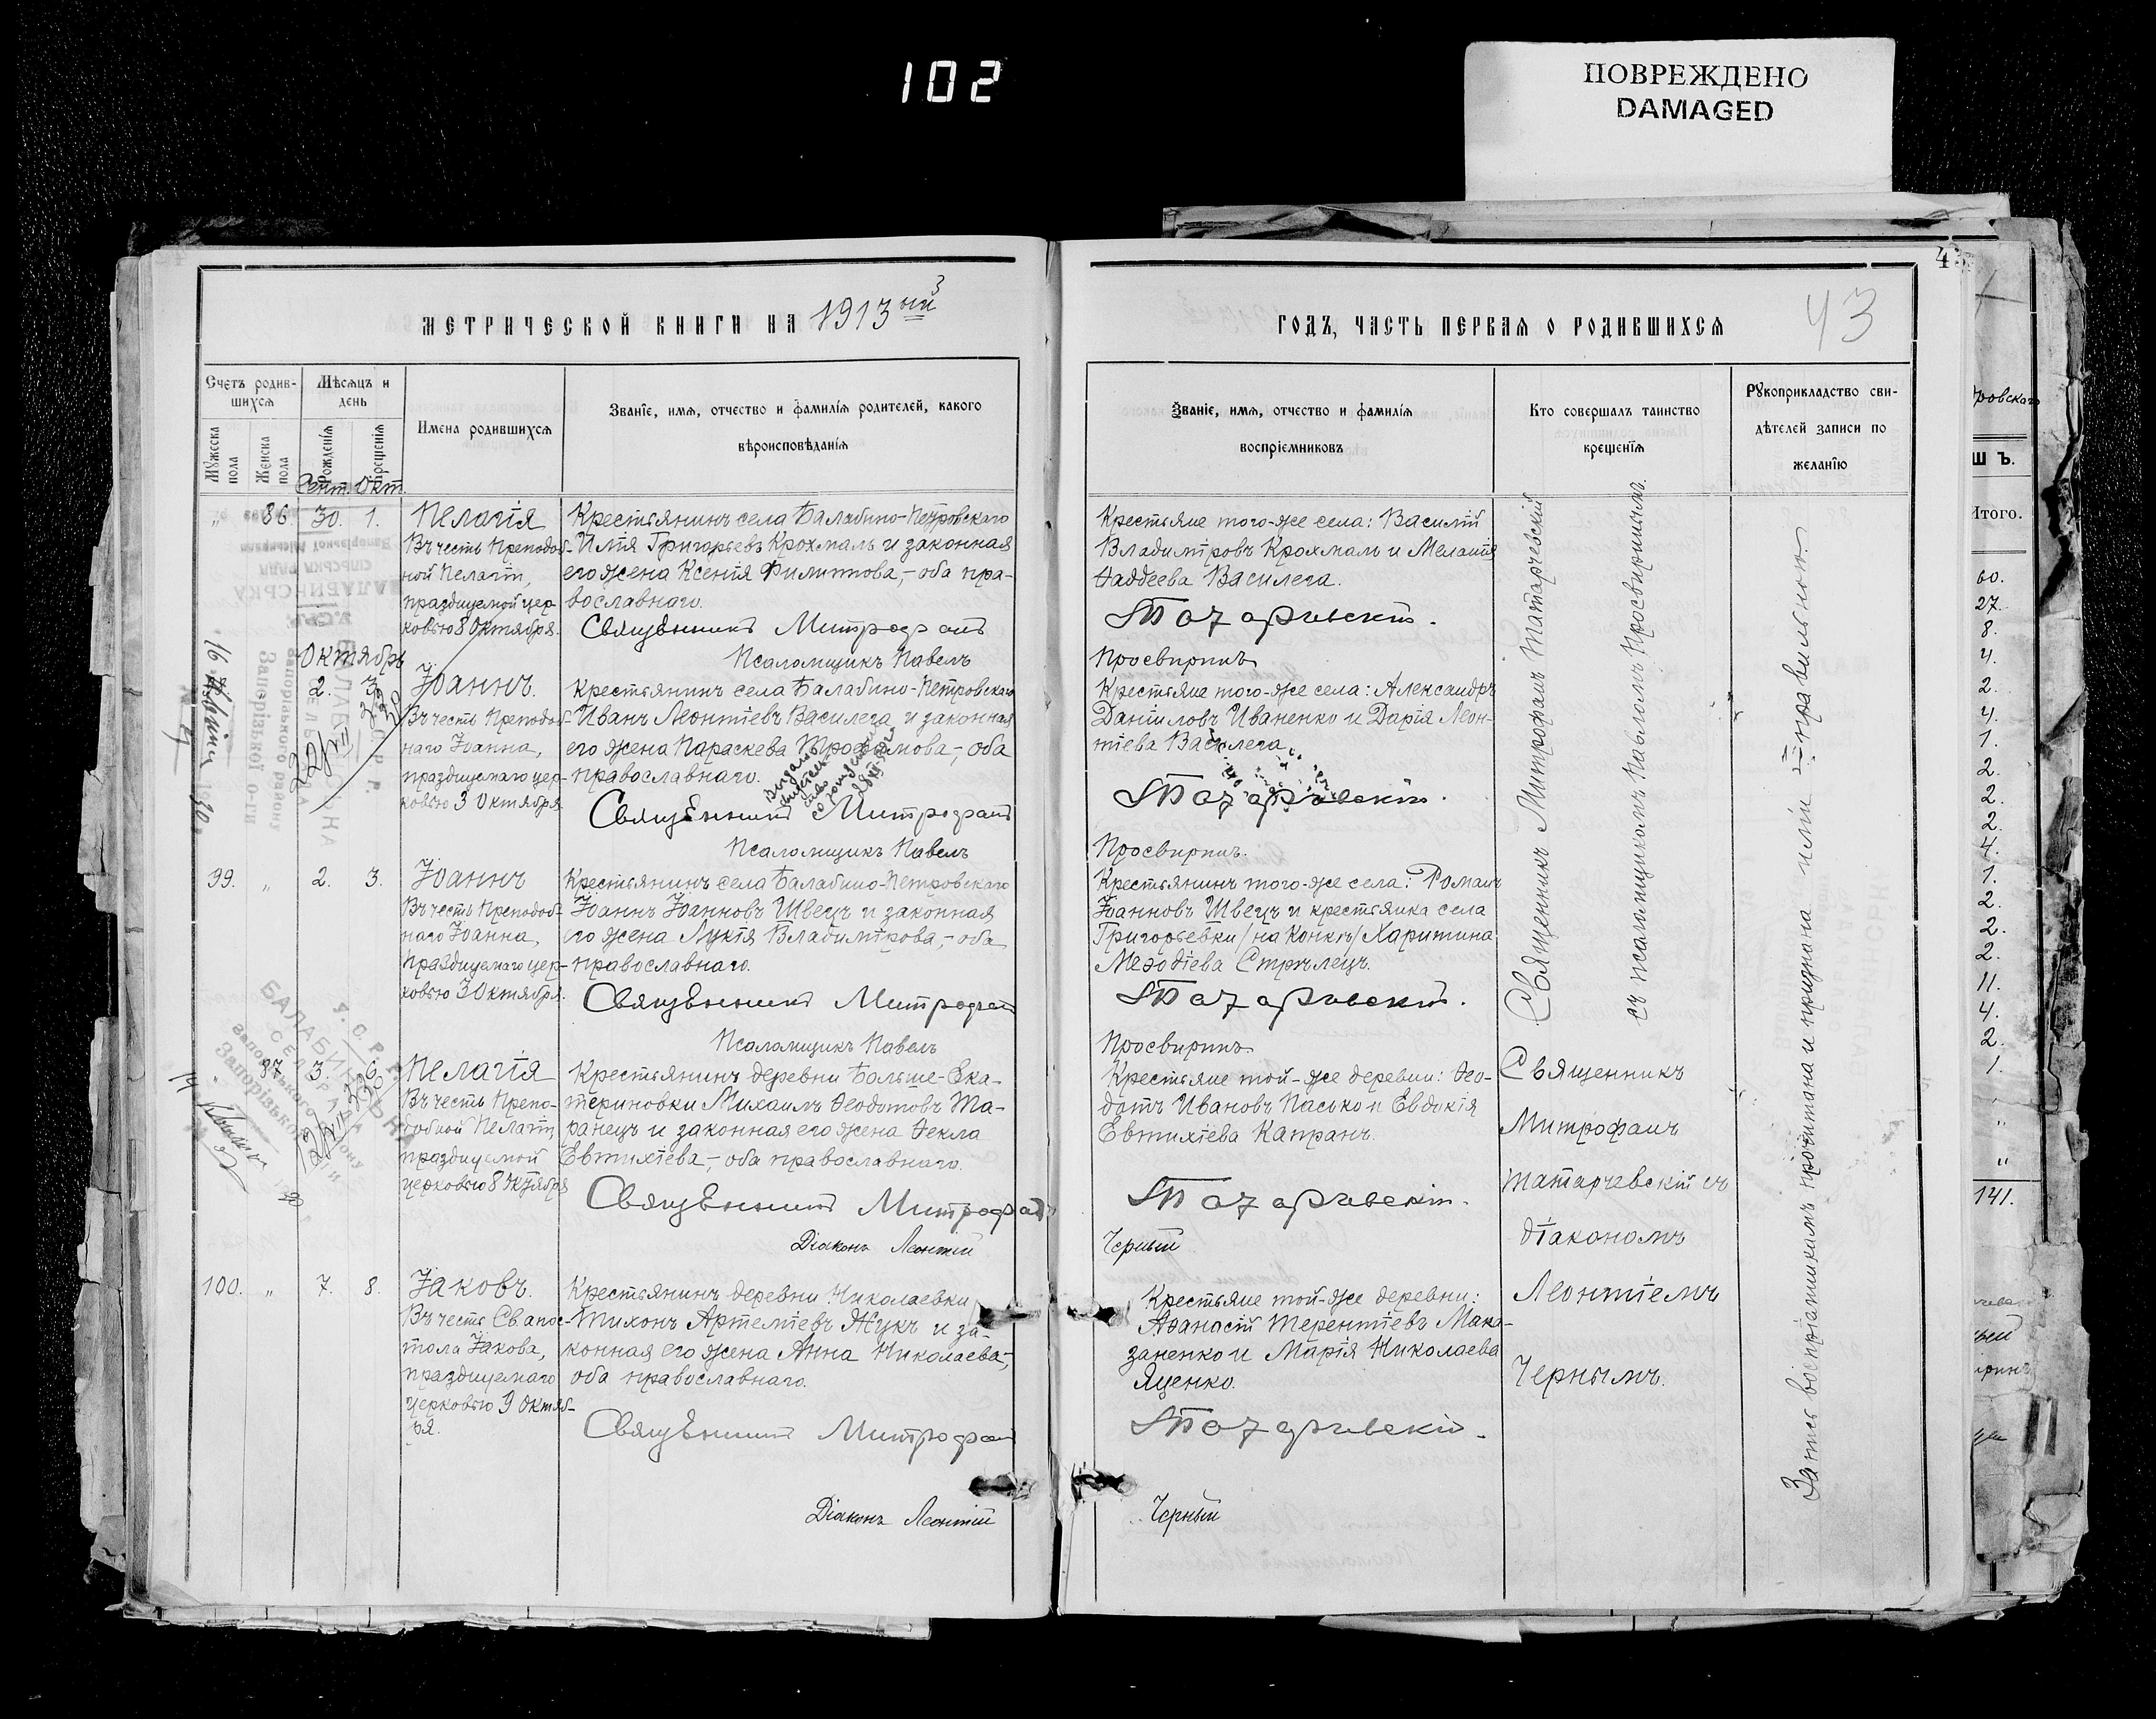 102
ПОВРЕЖДЕНО
DAMAGED
МЕТРИЧЕСКОЙ КНИГИ НА 1913 ый
Счетъ родив-
шихся
Мѣсяцъ и
день
Имена родившихся
Званіе, имя, отчество и фамилія родителей, какого
вѣроисповѣданія
Мужеска
пола
Женска
пола
Рожденія
Крещенія
Сент. Окт.
„ 86. 30. 1. Пелагія
Въ честь Преподоб-
ной Пелагіи,
празднуемой цер-
ковью 8 Октября.
Крестьянинъ села Балабино-Петровскаго
Илія Григорьевъ Крохмаль и законная
его жена Ксенія Филиппова,- оба пра-
вославнаго.
Священникъ Митрофанъ
Псаломщикъ Павелъ
Октябрь
2. 3. Іоаннъ.
Въ честь Преподоб-
наго Іоанна,
празднуемаго цер-
ковью 3 Октября.
Крестьянинъ села Балабино-Петровскаго
Иванъ Леонтіевъ Василега и законная
его жена Параскева Трофимова,- оба
православнаго.
Священникъ Митрофанъ
Псаломщикъ Павелъ
99. „ 2. 3. Іоаннъ
Въ честь Преподоб-
наго Іоанна,
празднуемаго цер-
ковью 3 Октября.
Крестьянинъ села Балабино-Петровскаго
Іоаннъ Іоанновъ Швецъ и законная
его жена Лукія Владимірова,- оба
православнаго.
Священникъ Митрофанъ
Псаломщикъ Павелъ
87. 3. 6. Пелагія
Въ честь Препо-
добной Пелагіи,
празднуемой
церковью 8 Октября
Крестьянинъ деревни Больше-Ека-
териновки Михаилъ Ѳеодотовъ Та-
ранецъ и законная его жена Ѳекла
Евтихіева,- оба православнаго.
Священникъ Митрофанъ
Діаконъ Леонтій
100. „ 7. 8. Іаковъ.
Въ честь Св апос-
тола Іакова,
празднуемаго
церковью 9 Октяб-
ря.
Крестьянинъ деревни Николаевки
Тихонъ Артеміевъ Жукъ и за-
конная его жена Анна Николаева,-
оба православнаго.
Священникъ Митрофанъ
Діаконъ Леонтій
ГОДЪ, ЧАСТЬ ПЕРВАЯ О РОДИВШИХСЯ
43
Званіе, имя, отчество и фамилія
воспріемниковъ
Кто совершалъ таинство
крещенія
Рукоприкладство сви-
дѣтелей записи по
желанію
Крестьяне того-же села: Василій
Владиміровъ Крохмаль и Мелания
Ѳаддеева Василега.
Татарчевскій.
Просвирнинъ
Крестьяне того-же села: Александръ
Даніиловъ Иваненко и Дарія Леон-
тіева Василега.
Татарчевскій.
Просвирнинъ.
Крестьянинъ того-же села: Романъ
Іоанновъ Швецъ и крестьянка села
Григорьевки /на Конкѣ/ Харитина
Меѳодіева Стрѣлецъ.
Татарчевскій.
Просвирнинъ.
Крестьяне той-же деревни: Ѳео-
дотъ Ивановъ Пасько и Евдокія
Евтихіева Капранъ.
Татарчевскій.
Черный
Крестьяне той-же деревни:
Аѳанасій Терентіевъ Мака-
заненко и Марія Николаева
Яценко.
Татарчевскій.
Черный
Священникъ Митрофанъ Татарчевскій
съ псаломщикомъ Павломъ Просвирнинымъ.
Священникъ
Митрофанъ
Татарчевскій съ
діакономъ
Леонтіемъ
Чернымъ.
Запись воспріемникамъ прочитана и признана ими правильною.
Итого.
60.
27.
8.
4.
2.
4.
1.
2.
2.
2.
4.
1.
2.
2.
2.
11.
4.
2.
1.
„
„
141.